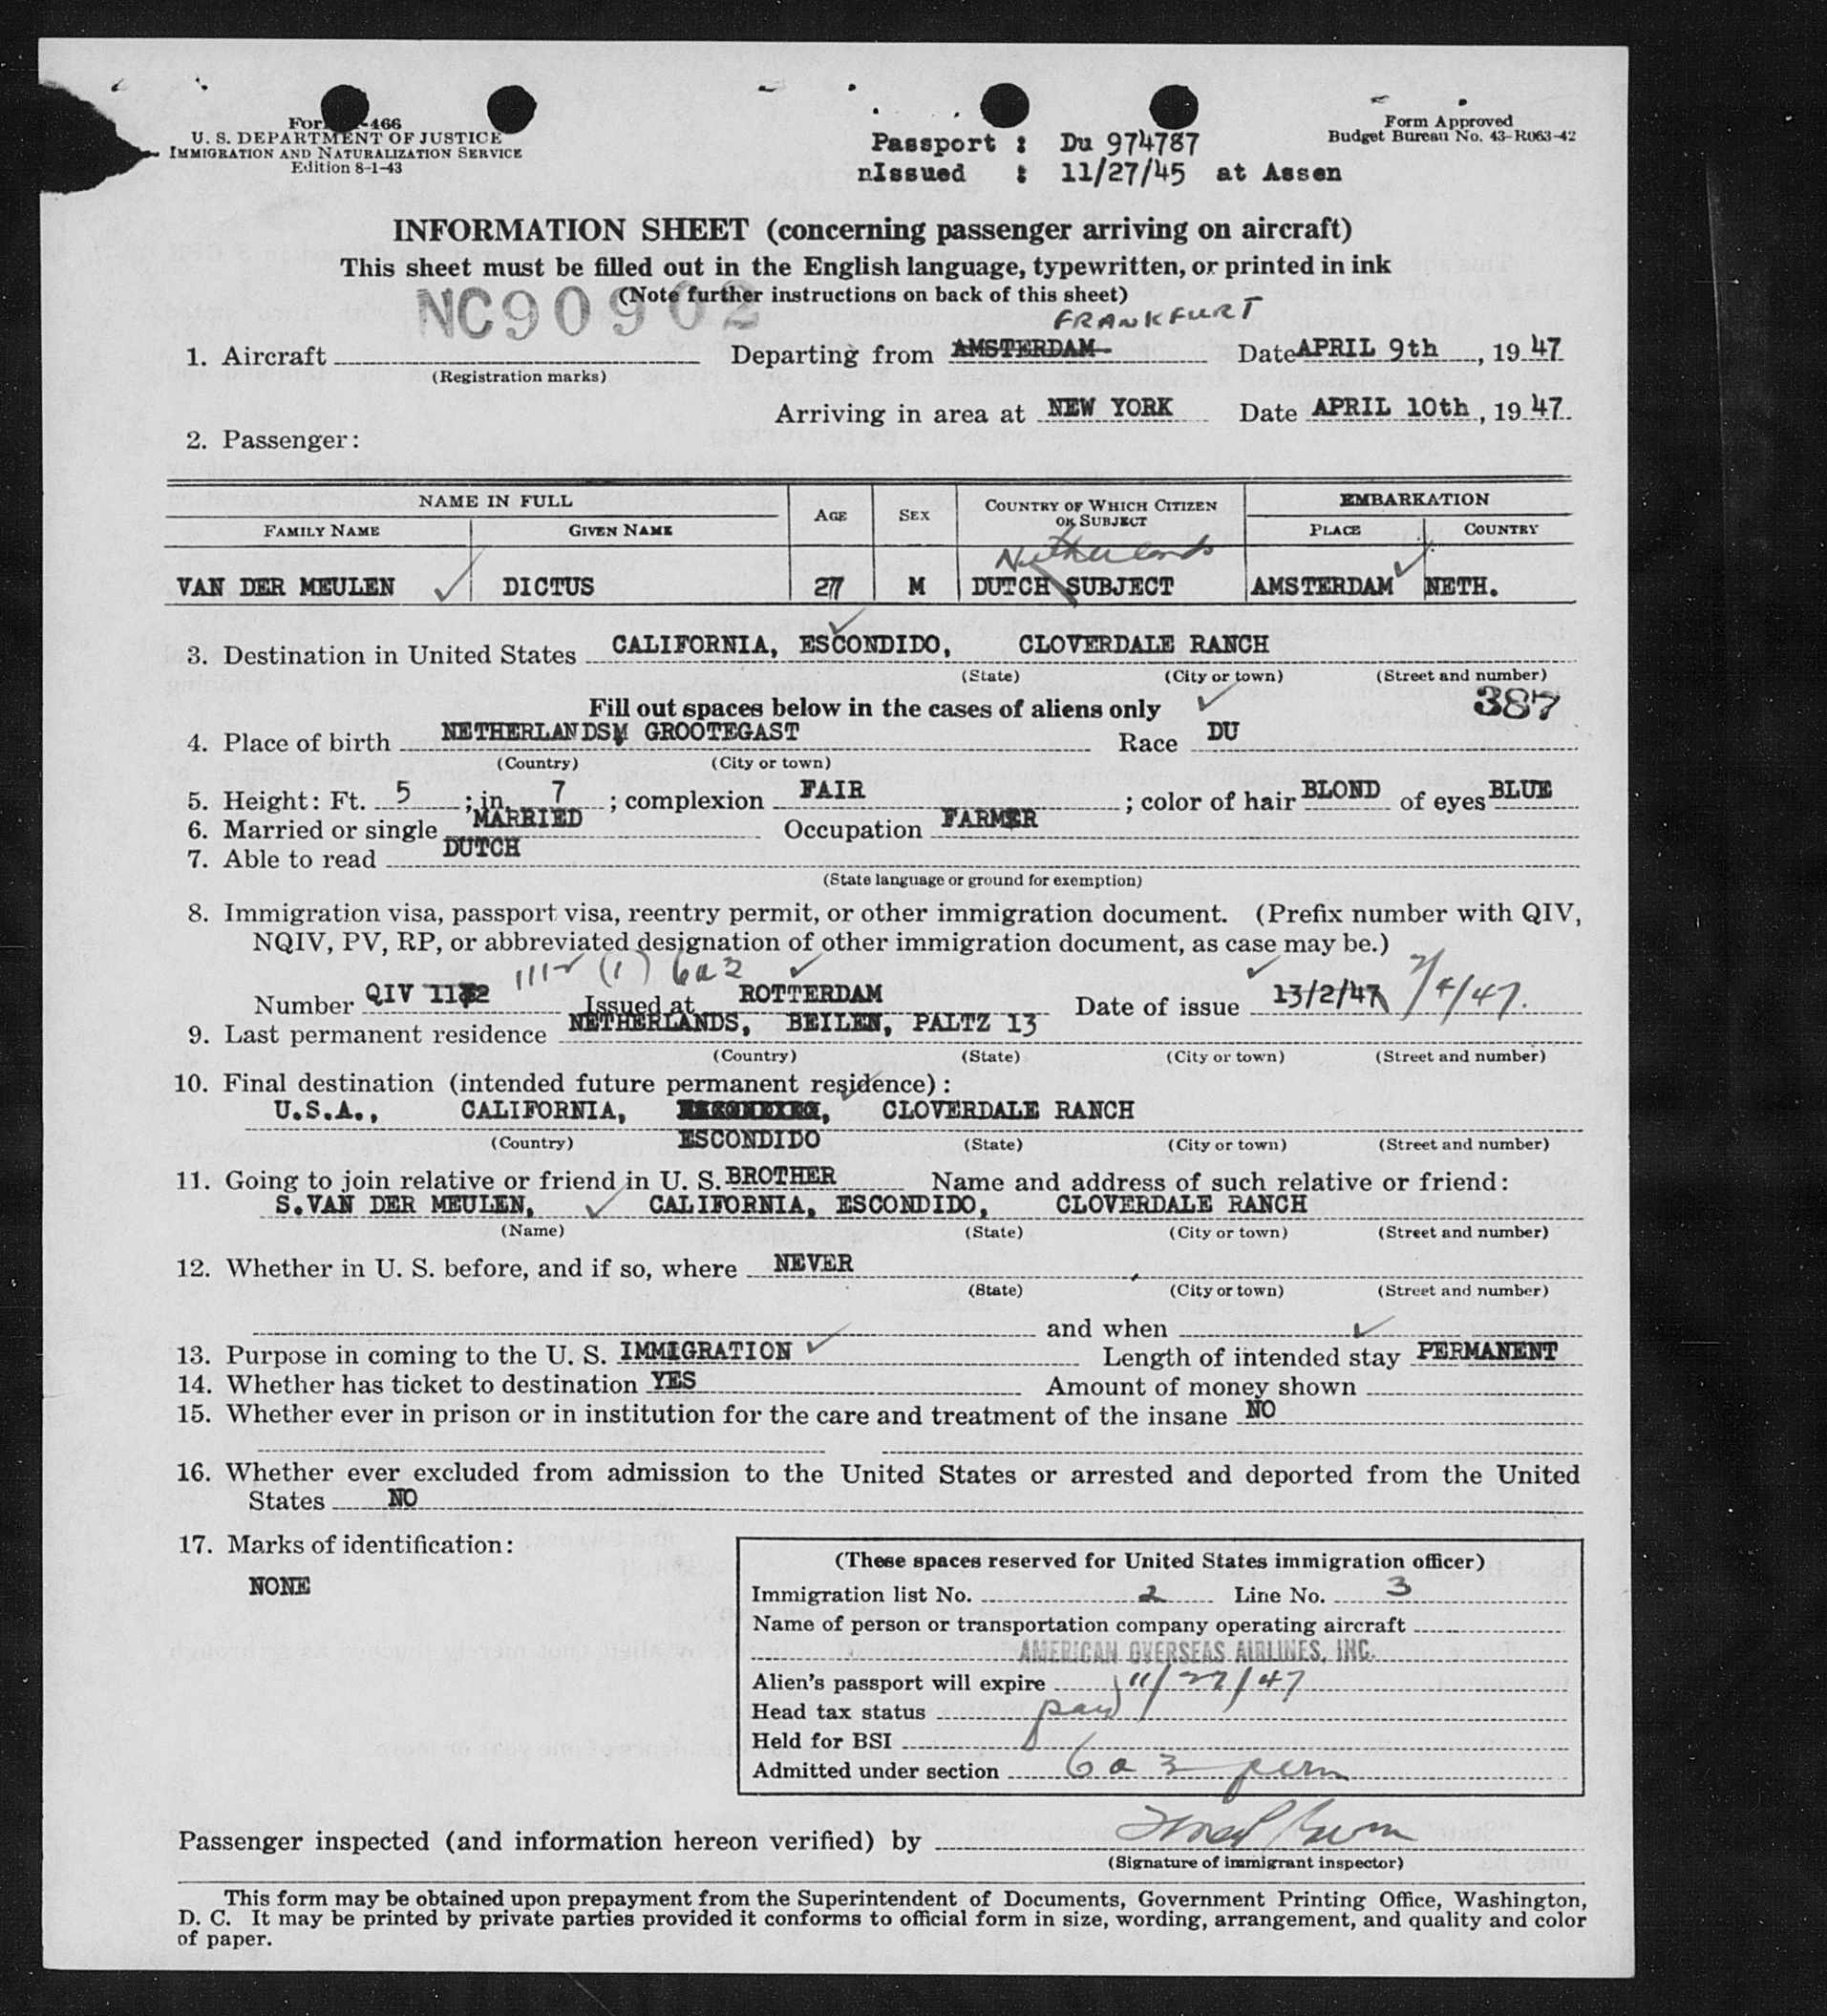 For -466
U. S. DEPARTMENT OF JUSTICE
IMMIGRATION AND NATURALIZATION SERVICE
Edition 8-1-43
Passport : Du 974787
nIssued : 11/27/45 at Assen
Form Approved
Budget Bureau No. 43-R063-42
INFORMATION SHEET (concerning passenger arriving on aircraft)
This sheet must be filled out in the English language, typewritten, or printed in ink
(Note further instructions on back of this sheet)
NC90902
FRANKFURT
1. Aircraft Departing from AMSTERDAM Date APRIL 9th, 19 47
(Registration marks)
Arriving in area at NEW YORK Date APRIL 10th, 19 47
2. Passenger:
NAME IN FULL AGE SEX COUNTRY OF WHICH CITIZEN OR SUBJECT EMBARKATION
FAMILY NAME GIVEN NAME PLACE COUNTRY
Netherlands
VAN DER MEULEN DICTUS 27 M DUTCH SUBJECT AMSTERDAM NETH.
3. Destination in United States CALIFORNIA, ESCONDIDO, CLOVERDALE RANCH
(State) (City or town) (Street and number)
Fill out spaces below in the cases of aliens only 387
4. Place of birth NETHERLANDS GROOTEGAST Race DU
(Country) (City or town)
5. Height: Ft. 5 ; in. 7 ; complexion FAIR ; color of hair BLOND of eyes BLUE
6. Married or single MARRIED Occupation FARMER
7. Able to read DUTCH
(State language or ground for exemption)
8. Immigration visa, passport visa, reentry permit, or other immigration document. (Prefix number with QIV,
NQIV, PV, RP, or abbreviated designation of other immigration document, as case may be.)
(1) 6a3
Number QIV Issued at ROTTERDAM Date of issue 13/2/47 /4/47.
9. Last permanent residence NETHERLANDS, BEILEN, PALTZ 13
(Country) (State) (City or town) (Street and number)
10. Final destination (intended future permanent residence):
U.S.A., CALIFORNIA, CLOVERDALE RANCH
(Country) ESCONDIDO (State) (City or town) (Street and number)
11. Going to join relative or friend in U. S. BROTHER Name and address of such relative or friend:
S.VAN DER MEULEN, CALIFORNIA, ESCONDIDO, CLOVERDALE RANCH
(Name) (State) (City or town) (Street and number)
12. Whether in U. S. before, and if so, where NEVER
(State) (City or town) (Street and number)
and when
13. Purpose in coming to the U. S. IMMIGRATION Length of intended stay PERMANENT
14. Whether has ticket to destination YES Amount of money shown
15. Whether ever in prison or in institution for the care and treatment of the insane NO
16. Whether ever excluded from admission to the United States or arrested and deported from the United
States NO
17. Marks of identification:
NONE
(These spaces reserved for United States immigration officer)
Immigration list No. 2 Line No. 3
Name of person or transportation company operating aircraft
AMERICAN OVERSEAS AIRLINES, INC.
Alien's passport will expire 11/27/47
Head tax status paid
Held for BSI
Admitted under section 6 a 3 perm
Passenger inspected (and information hereon verified) by
(Signature of immigrant inspector)
This form may be obtained upon prepayment from the Superintendent of Documents, Government Printing Office, Washington,
D. C. It may be printed by private parties provided it conforms to official form in size, wording, arrangement, and quality and color
of paper.